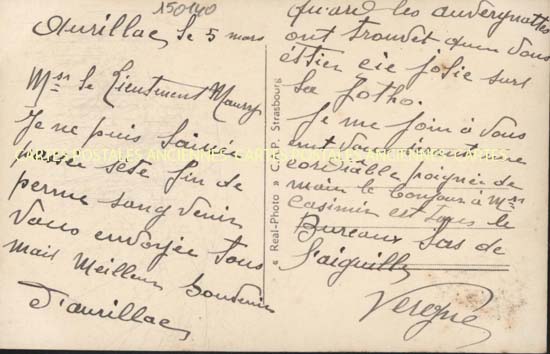 150140
Aurillac, le 5 mars
Mr le Lieutenent Maury
Je ne puis laisser
passer sete fin de
perme sans venir
Vous envoyée tous
mais Meilleur Souvenir
D'aurillac,
quard les auvergnattes
ont trouvet quen Vous
étier eie jolie surt
la fotho.
Je me join à Vous
une
cordialle poignée de
main le bonjour à Mr
Casimir est tous le
Bureaux sas de
l'aiguille
Vergne
« Real-Photo » C.A.P. Strasbourg
CARTES POSTALES ANCIENNES CARTES